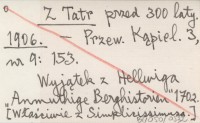 Z Tatr przed 300 laty.
1906. – Przew. Kąpiel. 3,
nr 9: 153.
Wyjątek z Hellwiga
"Anmuthige Berghistorien" 1702.
[Właściwie z Simplicissimusa.]